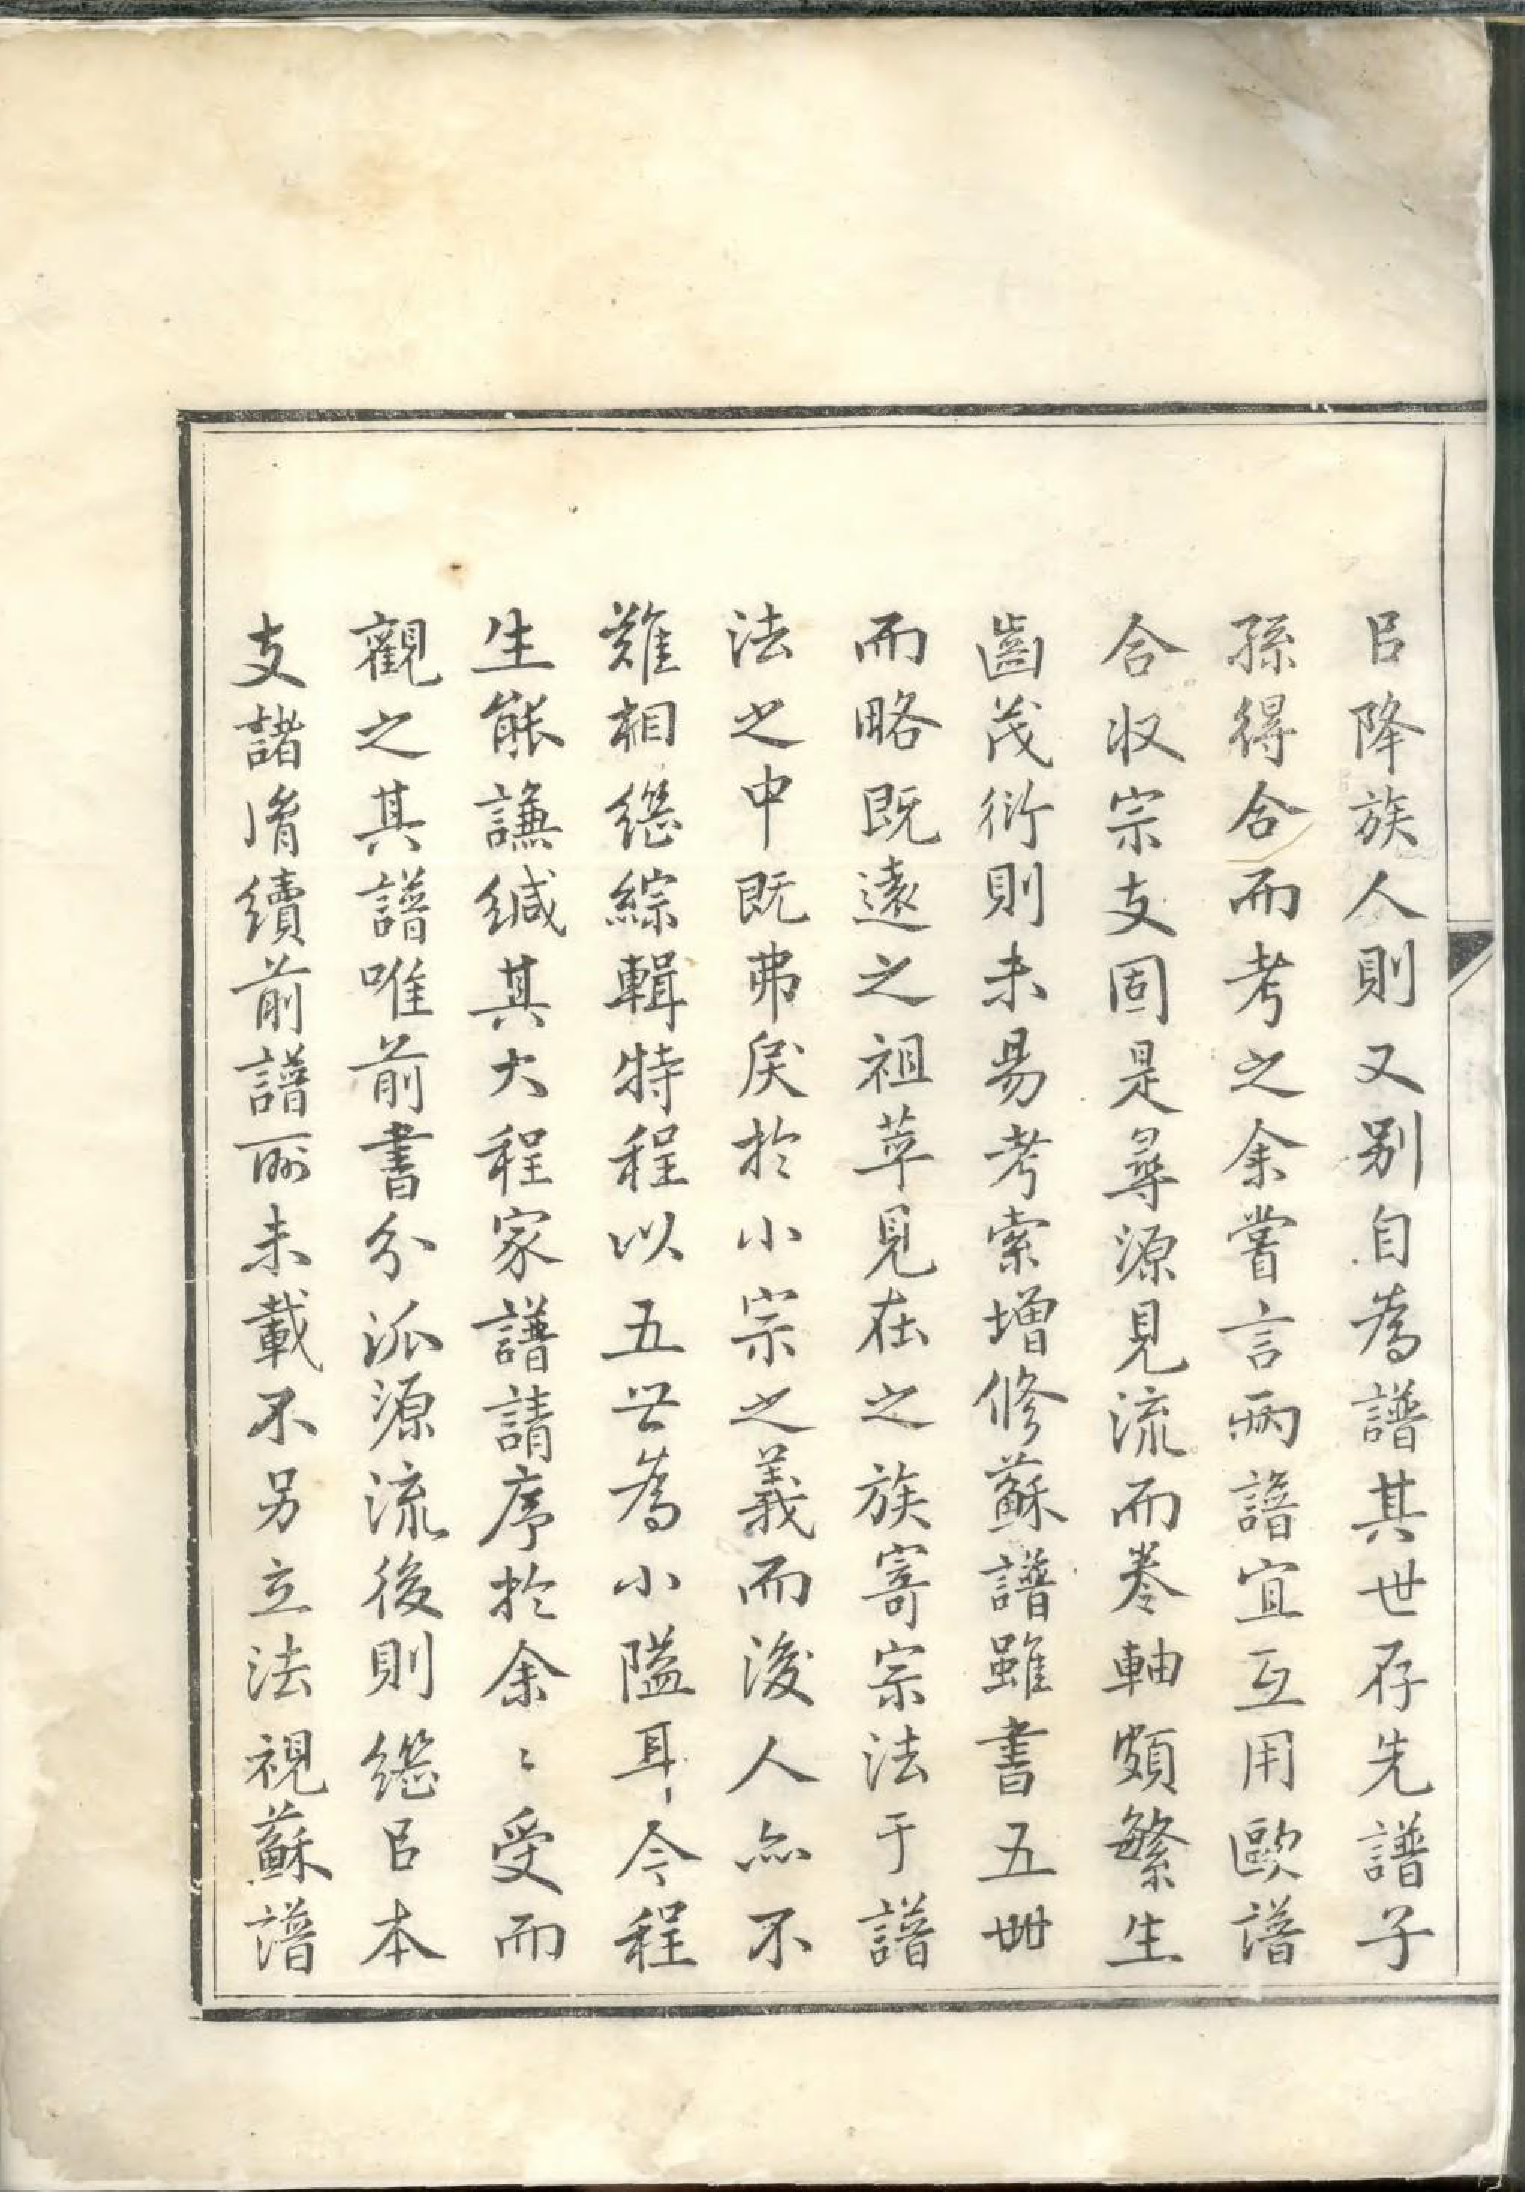 㠯降族人則又别自為譜其世存先譜子
孫得合而考之余嘗言兩譜宜互用歐譜
合收宗支固是尋源見流而卷軸頗繁生
齒茂衍則未易考索增修蘇譜雖書五世
而略既遠之祖萃見在之族寄宗法于譜
法之中既弗戾於小宗之義而後人亦不
難相繼綜輯特程以五世為小隘耳今程
生能謙緘其大程家譜請序於余〻受而
觀之其譜唯前書分派源流後則繼㠯本
支諸胤續前譜所未載不另立法視蘇譜